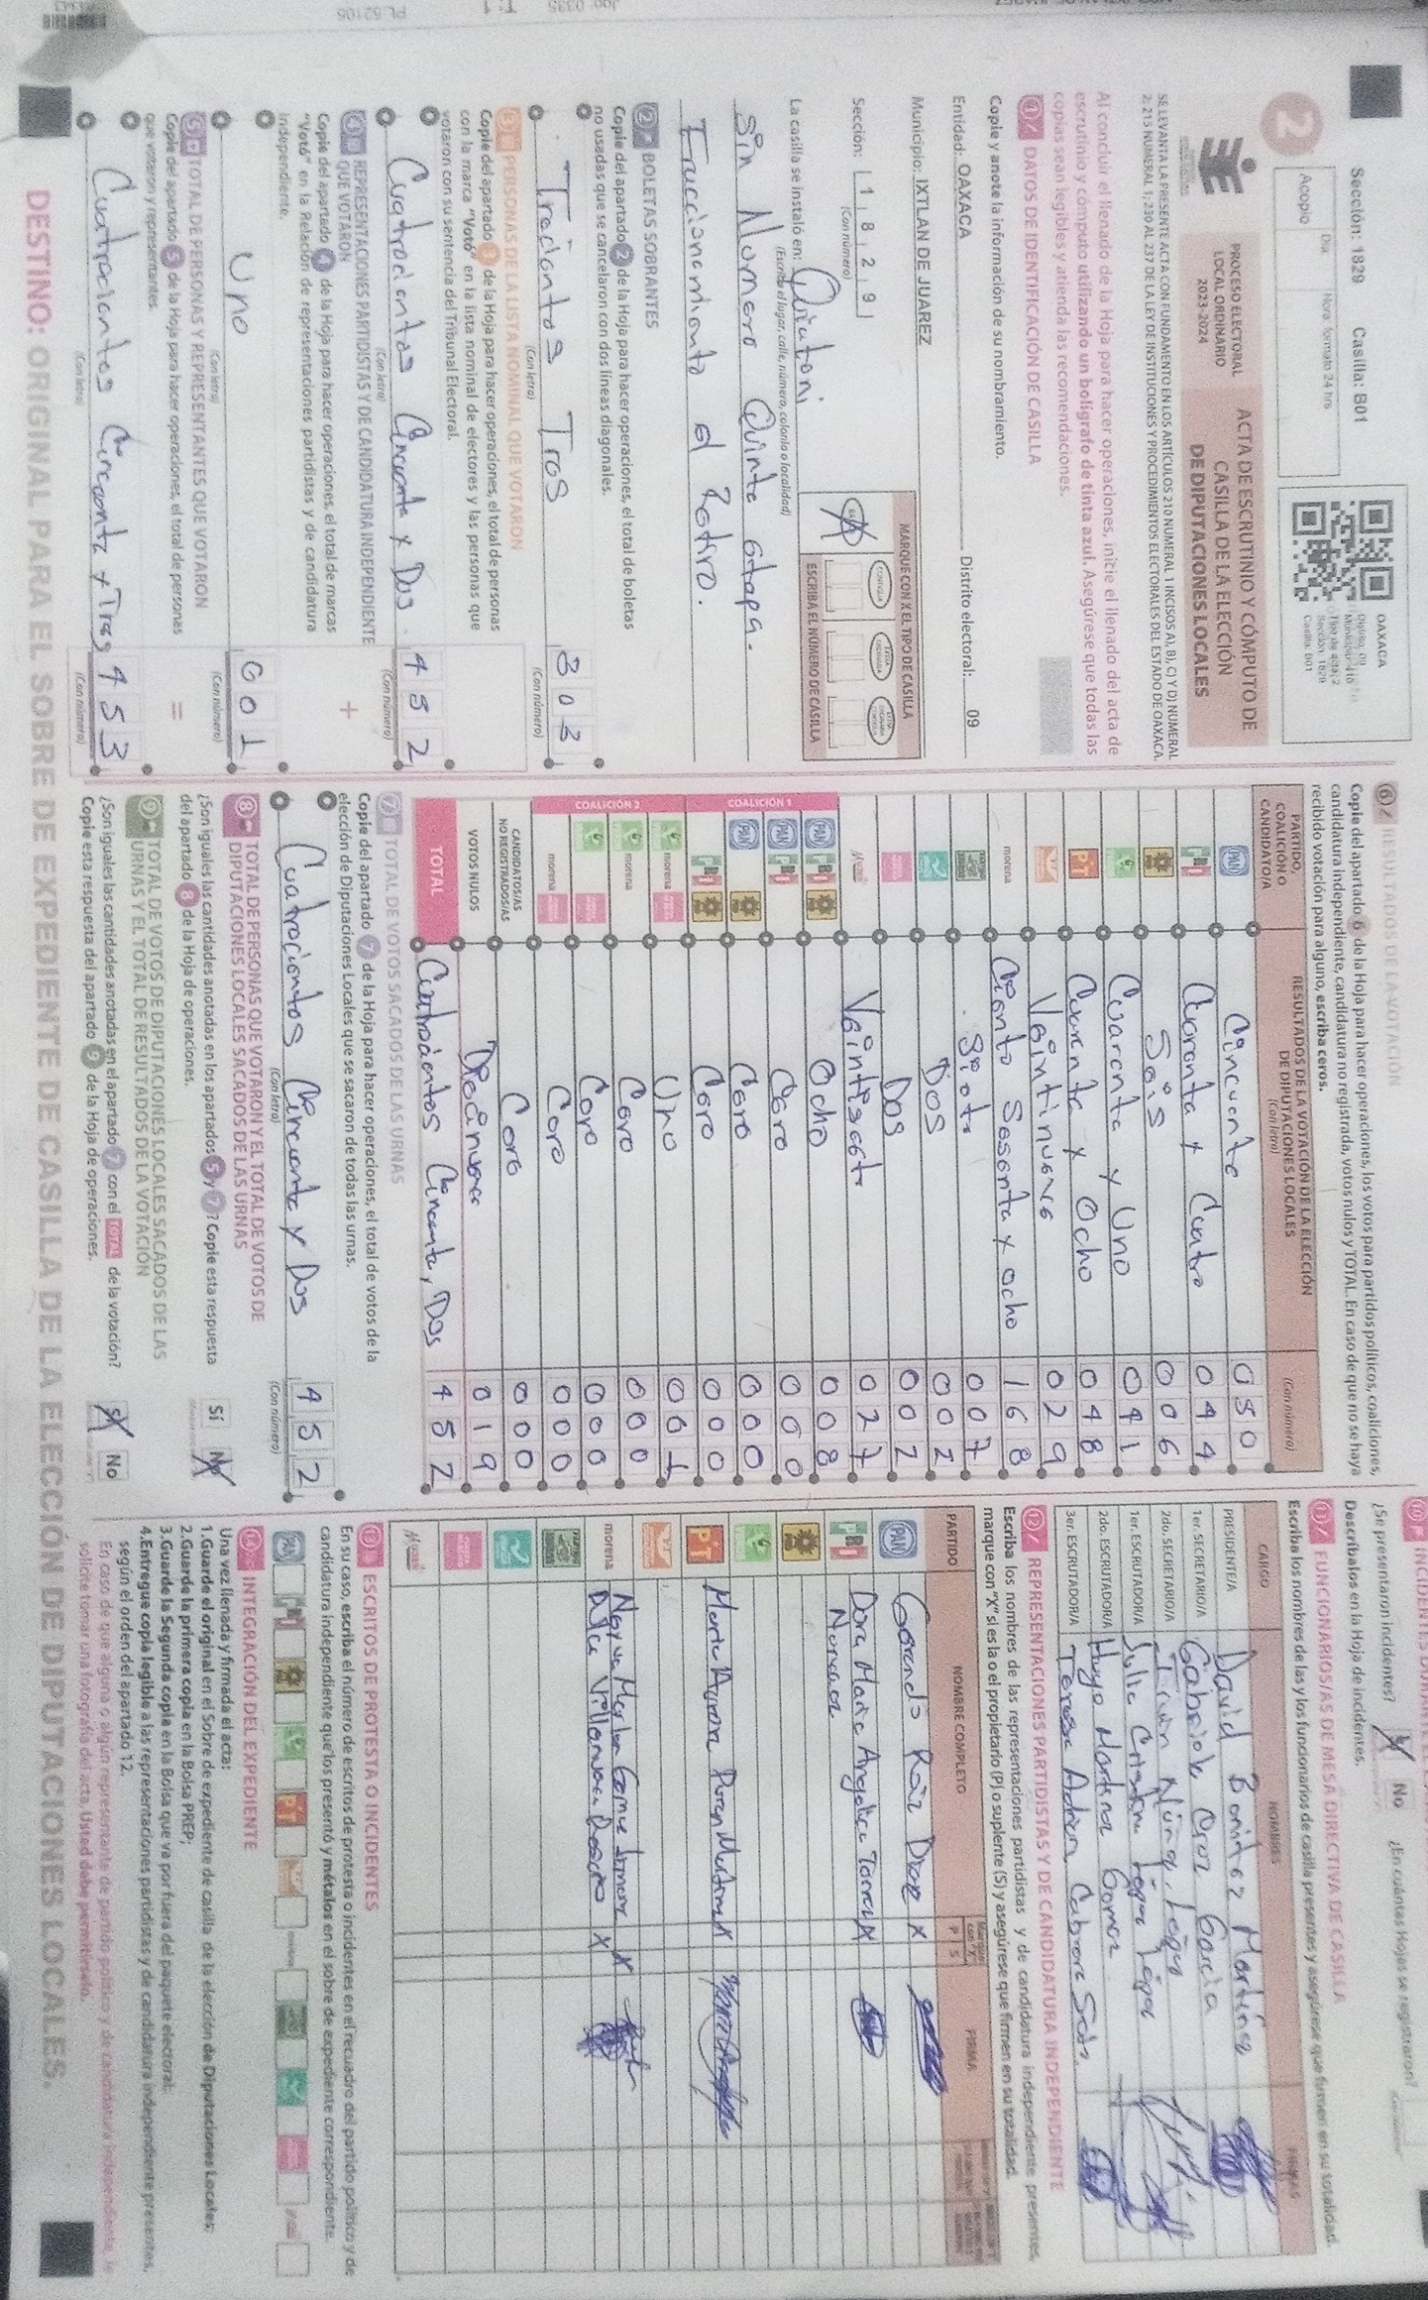 Sección: 1829 Casilla: B01
Día Hora formato 24 hrs
Acopio
2
OAXACA
PROCESO ELECTORAL
LOCAL ORDINARIO
2023-2024
ACTA DE ESCRUTINIO Y CÓMPUTO DE
CASILLA DE LA ELECCIÓN
DE DIPUTACIONES LOCALES
SE LEVANTA LA PRESENTE ACTA CON FUNDAMENTO EN LOS ARTÍCULOS 310 NUMERAL 1 INCISOS A), B), C) Y D) NUMERAL
2; 215 NUMERAL 1; 230 AL 237 DE LA LEY DE INSTITUCIONES Y PROCEDIMIENTOS ELECTORALES DEL ESTADO DE OAXACA.
Al concluir el llenado de la Hoja para hacer operaciones, inicie el llenado del acta de
escrutinio y cómputo utilizando un bolígrafo de tinta azul. Asegúrese que todas las
copias sean legibles y atienda las recomendaciones.
1 DATOS DE IDENTIFICACIÓN DE CASILLA
Copie y anote la información de su nombramiento.
Entidad: OAXACA Distrito electoral: 09
Municipio: IXTLAN DE JUAREZ
Sección: 1829
(Con número)
MARQUE CON X EL TIPO DE CASILLA
ESCRIBA EL NÚMERO DE CASILLA
La casilla se instaló en: Quiatoni
(Escriba el lugar, calle, número, colonia o localidad)
Sin Numero Quinta etapa.
Fraccionamiento el Retiro.
2 BOLETAS SOBRANTES
Copie del apartado 2 de la Hoja para hacer operaciones, el total de boletas
no usadas que se cancelaron con dos líneas diagonales.
Trecientos Tres 303
(Con letra) (Con número)
3 PERSONAS DE LA LISTA NOMINAL QUE VOTARON
Copie del apartado 3 de la Hoja para hacer operaciones, el total de personas
con la marca "Votó" en la lista nominal de electores y las personas que
votaron con su sentencia del Tribunal Electoral.
Cuatrocientos Cincuenta y Dos. 452
(Con letra) (Con número)
4 REPRESENTACIONES PARTIDISTAS Y DE CANDIDATURA INDEPENDIENTE
QUE VOTARON +
Copie del apartado 4 de la Hoja para hacer operaciones, el total de marcas
"Votó" en la Relación de representaciones partidistas y de candidatura
independiente.
Uno 001
(Con letra) (Con número)
5 TOTAL DE PERSONAS Y REPRESENTANTES QUE VOTARON =
Copie del apartado 5 de la Hoja para hacer operaciones, el total de personas
que votaron y representantes.
Cuatrocientos Cincuenta y Tres 453
(Con letra) (Con número)
6 RESULTADOS DE LA VOTACIÓN
Copie del apartado 6 de la Hoja para hacer operaciones, los votos para partidos políticos, coaliciones,
candidatura independiente, candidatura no registrada, votos nulos y TOTAL. En caso de que no se haya
recibido votación para alguno, escriba ceros.
PARTIDO, COALICIÓN O CANDIDATO/A
RESULTADOS DE LA VOTACIÓN DE LA ELECCIÓN DE DIPUTACIONES LOCALES
(Con letra) (Con número)
PAN Cincuenta 050
PRI Cuarenta y Cuatro 044
Seis 006
Cuarenta y Uno 041
PT Cuarenta y Ocho 048
Veintinueve 029
morena Ciento Sesenta y ocho 168
Siete 007
Dos 002
Dos 002
Veintisiete 027
COALICIÓN 1
PAN PRI Ocho 008
PAN PRI Cero 000
PAN Cero 000
PRI Cero 000
COALICIÓN 2
morena Uno 001
morena Cero 000
Cero 000
morena Cero 000
CANDIDATOS/AS NO REGISTRADOS/AS Cero 000
VOTOS NULOS Diecinueve 019
TOTAL Cuatrocientos Cincuenta, Dos 452
7 TOTAL DE VOTOS SACADOS DE LAS URNAS
Copie del apartado 7 de la Hoja para hacer operaciones, el total de votos de la
elección de Diputaciones Locales que se sacaron de todas las urnas.
Cuatrocientos Cincuenta y Dos 452
(Con letra) (Con número)
8 TOTAL DE PERSONAS QUE VOTARON Y EL TOTAL DE VOTOS DE
DIPUTACIONES LOCALES SACADOS DE LAS URNAS
¿Son iguales las cantidades anotadas en los apartados 5 y 7? Copie esta respuesta
del apartado 8 de la Hoja de operaciones. Sí No
9 TOTAL DE VOTOS DE DIPUTACIONES LOCALES SACADOS DE LAS
URNAS Y EL TOTAL DE RESULTADOS DE LA VOTACIÓN
¿Son iguales las cantidades anotadas en el apartado 7 con el TOTAL de la votación?
Copie esta respuesta del apartado 9 de la Hoja de operaciones. Sí No
¿Se presentaron incidentes? Sí No ¿En cuántas Hojas se registraron?
Descríbalos en la Hoja de incidentes.
11 FUNCIONARIOS/AS DE MESA DIRECTIVA DE CASILLA
Escriba los nombres de las y los funcionarios de casilla presentes y asegúrese que firmen en su totalidad.
CARGO NOMBRES FIRMAS
PRESIDENTE/A David Benitez Martínez
1er. SECRETARIO/A Gabriela Cruz García
2do. SECRETARIO/A
1er. ESCRUTADOR/A Julia Cristina López López
2do. ESCRUTADOR/A Hugo Martinez Gomez
3er. ESCRUTADOR/A Teresa Cabrera Soto
12 REPRESENTACIONES PARTIDISTAS Y DE CANDIDATURA INDEPENDIENTE
Escriba los nombres de las representaciones partidistas y de candidatura independiente presentes,
marque con "X" si es la o el propietario (P) o suplente (S) y asegúrese que firmen en su totalidad.
PARTIDO NOMBRE COMPLETO P S FIRMA
PAN X
PRI Dora Maria Angelica Torres X
PT X
morena X
X
13 ESCRITOS DE PROTESTA O INCIDENTES
En su caso, escriba el número de escritos de protesta o incidentes en el recuadro del partido político y de
candidatura independiente que los presentó y métalos en el sobre de expediente correspondiente.
PAN PRI PT
14 INTEGRACIÓN DEL EXPEDIENTE
Una vez llenada y firmada el acta:
1.Guarde el original en el Sobre de expediente de casilla de la elección de Diputaciones Locales;
2.Guarde la primera copia en la Bolsa PREP;
3.Guarde la Segunda copia en la Bolsa que va por fuera del paquete electoral;
4.Entregue copia legible a las representaciones partidistas y de candidatura independiente presentes,
según el orden del apartado 12.
En caso de que alguna o algún representante de partido político y de candidatura independiente, le
solicite tomar una fotografía del acta, Usted debe permitírselo.
DESTINO: ORIGINAL PARA EL SOBRE DE EXPEDIENTE DE CASILLA DE LA ELECCIÓN DE DIPUTACIONES LOCALES.